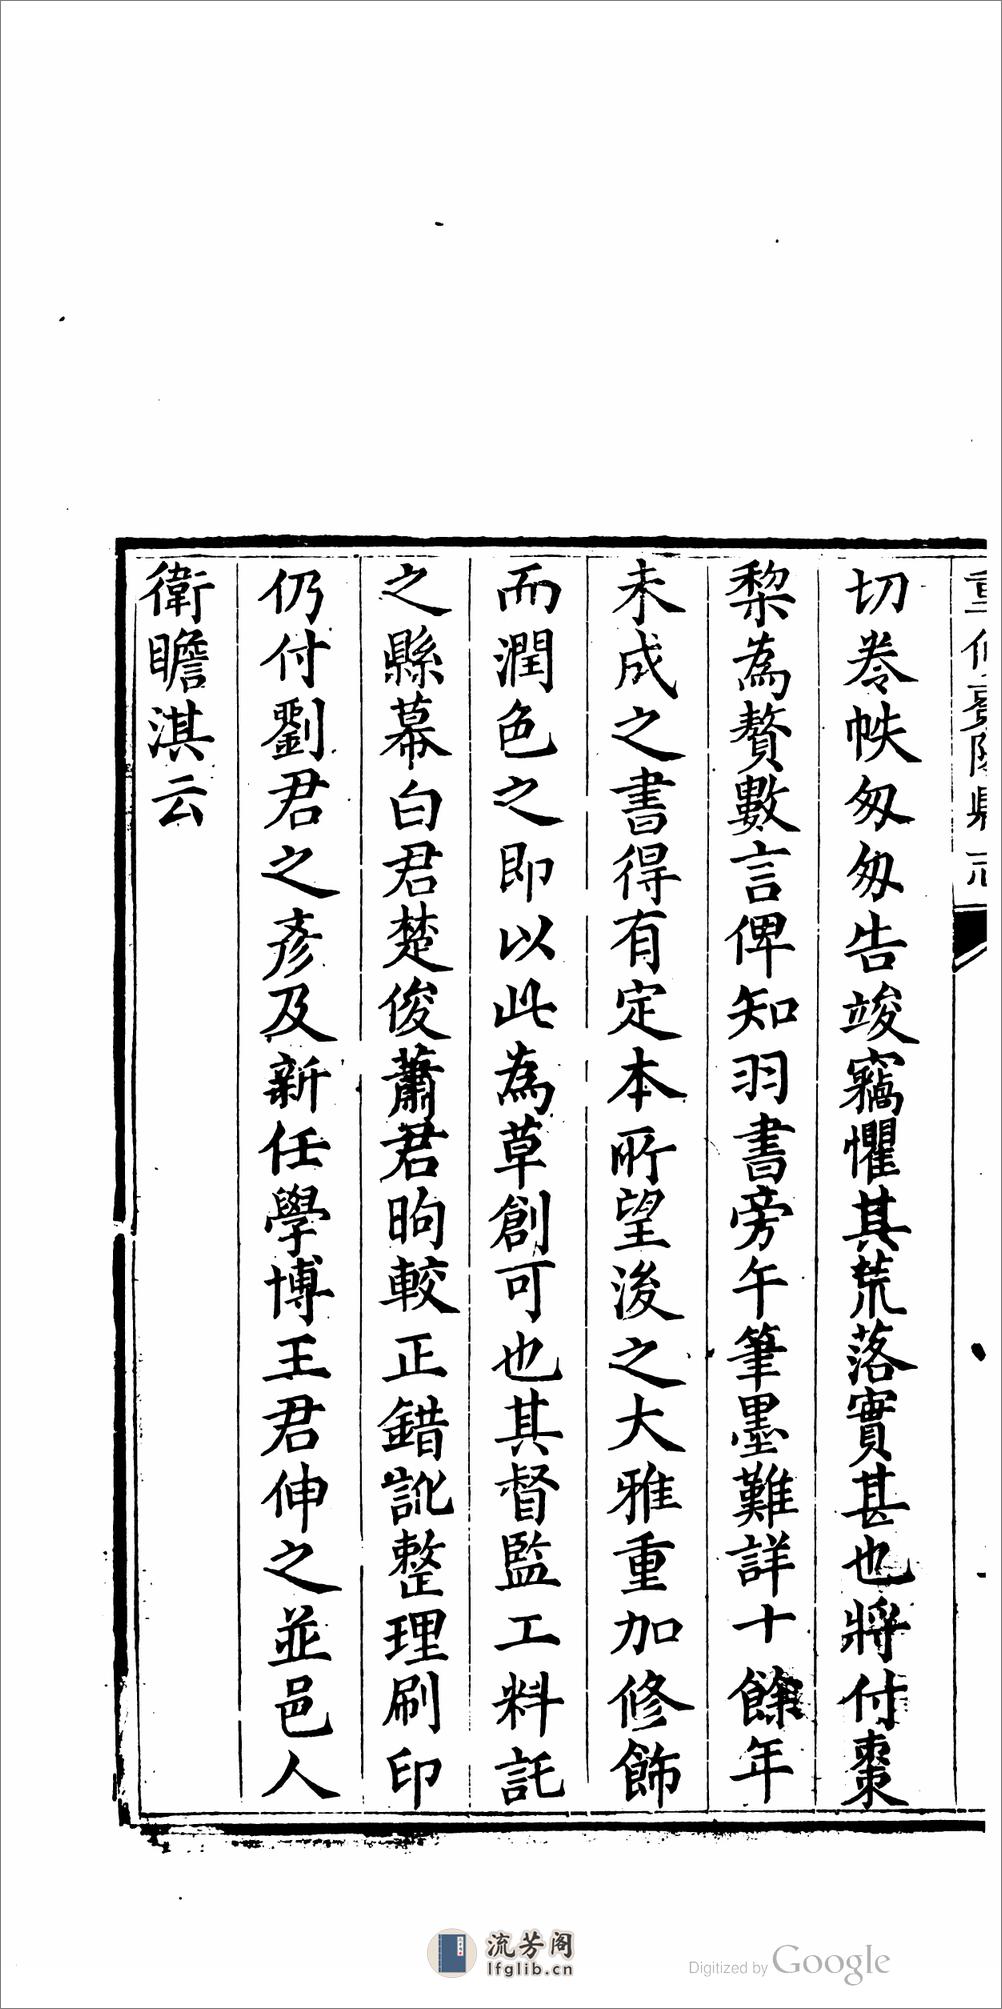 重修襄陵縣志
切卷帙匆匆告竣竊懼其荒落實甚也將付棗
棃為贅數言俾知羽書旁午筆墨難詳十餘年
未成之書得有定本所望後之大雅重加修飾
而潤色之即以此為草創可也其督監工料託
之縣幕白君楚俊蕭君昫較正錯訛整理刷印
仍付劉君之彥及新任學博王君伸之並邑人
衛瞻淇云
流芳阁
lfglib.cn
Digitized by Google